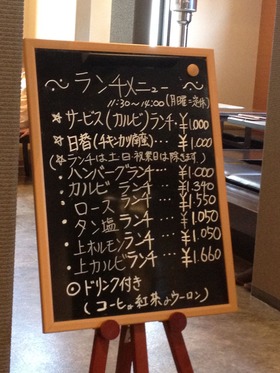 〜ランチメニュー〜
11:30〜14:00(月曜=定休)
☆サービス(カルビ)ランチ・¥1,000
☆日替(チキンカツ南蛮)…¥1,000
(☆ランチは土・日・祝祭日は除きます)
ハンバーグランチ…¥1,000
カルビ ランチ…¥1,340
ロース ランチ…¥1,550
タン塩ランチ…¥1,050
上ホルモンランチ…¥1,050
上カルビランチ…¥1,660
◎ドリンク付き
(コーヒーor紅茶orウーロン)